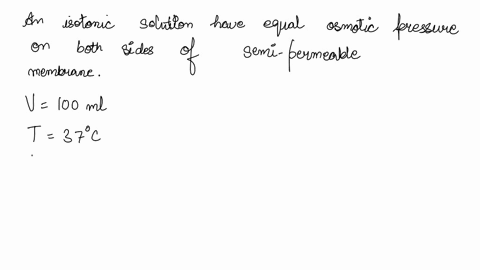 An isotonic solution have equal osmotic pressure
on both sides of semi-permeable
membrane.
V = 100 ml
T = 37°C